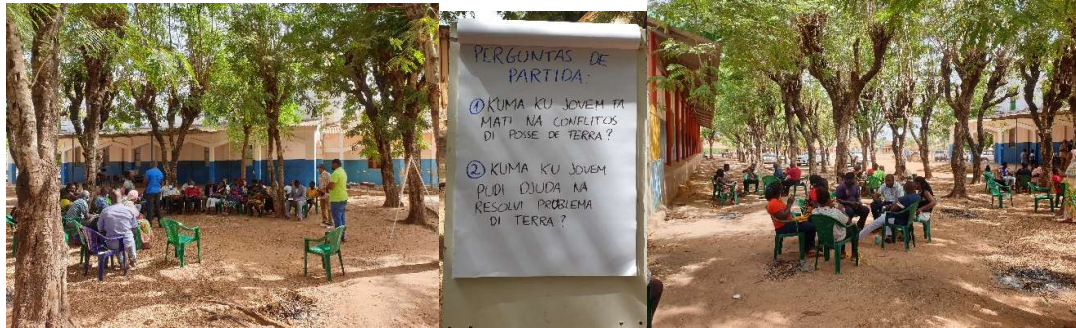 PERGUNTAS DE
PARTIDA:
① KUMA KU JOVEM TA
MATI NA CONFLITOS
DI POSSE DE TERRA?
② KUMA KU JOVEM
PUDI DJUDA NA
RESOLVI PROBLEMA
DI TERRA?